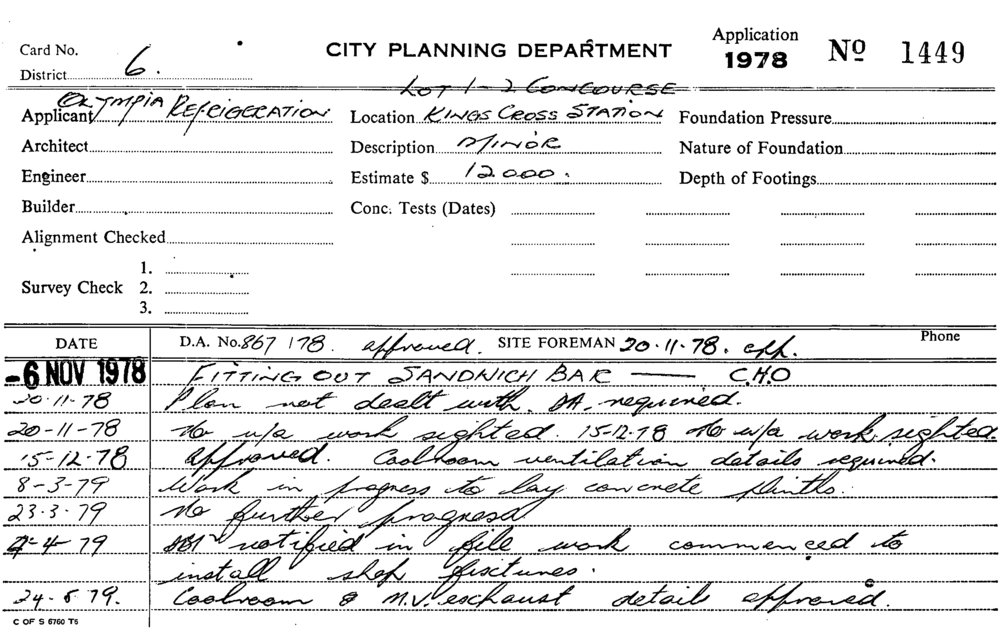 Card No. CITY PLANNING DEPARTMENT Application 1978 Nº 1449
District 6.
LOT 1-2 CONCOURSE
Applicant OLYMPIA REFRIGERATION Location KINGS CROSS STATION Foundation Pressure
Architect Description MINOR Nature of Foundation
Engineer Estimate $ 12000. Depth of Footings
Builder Conc. Tests (Dates)
Alignment Checked
1.
Survey Check 2.
3.
DATE D.A. No. 867 178. approved. SITE FOREMAN 20.11.78. app. Phone
-6 NOV 1978 FITTING OUT SANDWICH BAR — C.H.O
20.11-78 Plan not dealt with. DA. required.
20-11-78 No u/a work sighted. 15-12-78 No u/a work sighted.
15-12-78 approved. Coolroom ventilation details required.
8-3-79 Work in progress to lay concrete plinths.
23.3.79 No further progress.
4 79 notified in file work commenced to
install shop fixtures.
24-5 79. Coolroom & M.V. exhaust details approved.
C OF S 6760 T6